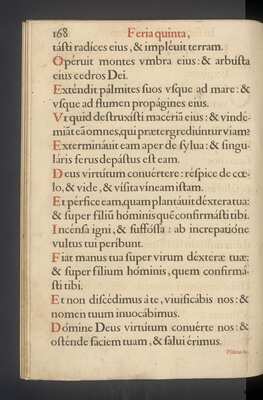 168 Feria quinta,
tásti radíces eius, & impléuit terram.
Opéruit montes vmbra eius: & arbústa
eius cedros Dei.
Exténdit pálmites suos vsque ad mare: &
vsque ad flumen propágines eius.
Vt quid destruxísti macériã eius: & vindé-
miãt eã omnes, qui prætergrediúntur viam?
Exterminàuit eam aper de sylua: & singu-
láris ferus depástus est eam.
Deus virtútum conuértere: réspice de cœ-
lo, & vide, & vísita víneam istam.
Et pérfice eam, quam plantáuit déxtera tua:
& super filiũ hóminis quẽ confirmásti tibi.
Incénsa igni, & suffóssa: ab increpatióne
vultus tui períbunt.
Fiat manus tua super virum déxteræ tuæ:
& super filium hóminis, quem confirmá-
sti tibi.
Et non discédimus á te, viuificábis nos: &
nomen tuum inuocábimus.
Dómine Deus virtútum conuérte nos: &
osténde faciem tuam, & salui érimus.